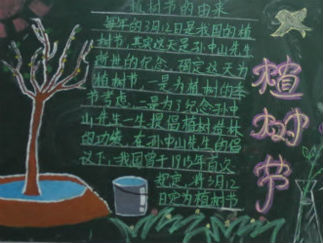 植树节的由来
每年的3月12日是我国的植
树节,其实这天是孙中山先生
逝世的纪念,确定这天为
植树节,一是为植树的季
节考虑,二是为了纪念孙中
山先生一生提倡植树造林
的功绩,在孙中山先生的倡
议下,我国曾于1915年首次
规定,将3月12
日定为植树节
植树节